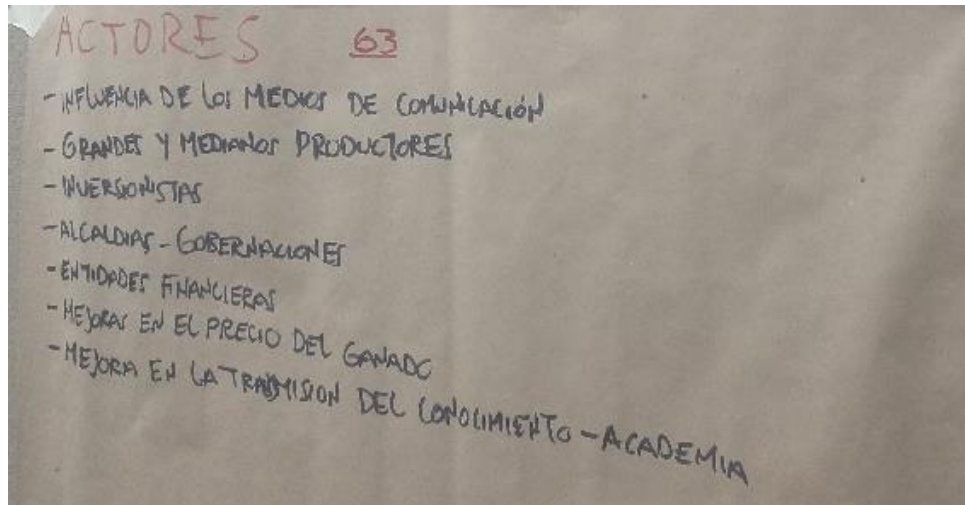 ACTORES 63
- INFLUENCIA DE LOS MEDIOS DE COMUNICACIÓN
- GRANDES Y MEDIANOS PRODUCTORES
- INVERSIONISTAS
- ALCALDIAS - GOBERNACIONES
- ENTIDADES FINANCIERAS
- MEJORAS EN EL PRECIO DEL GANADO
- MEJORA EN LA TRANSMISION DEL CONOCIMIENTO - ACADEMIA